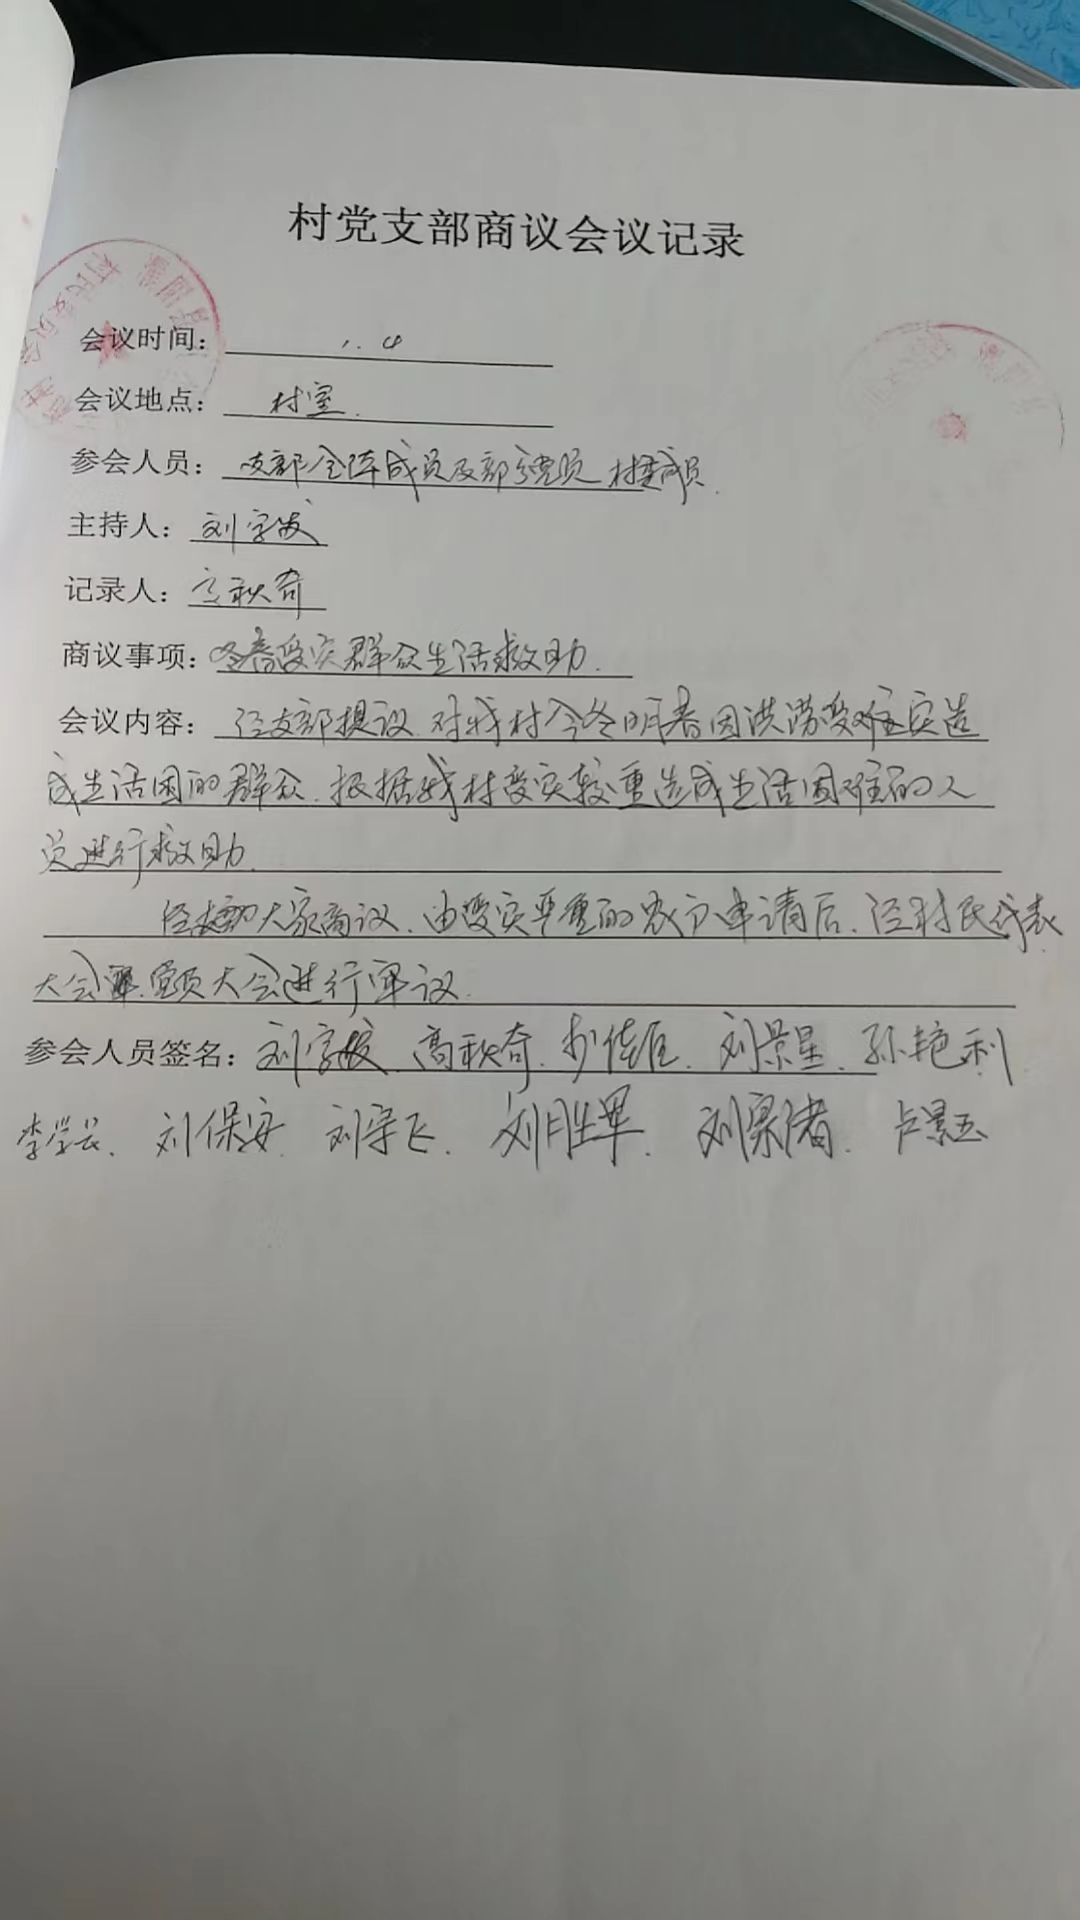 村党支部商议会议记录
会议时间： 1.4
会议地点： 村室.
参会人员： 支部全体成员及部分党员 村委成员.
主持人： 刘守
记录人： 高秋奇
商议事项： 冬春受灾群众生活救助.
会议内容： 经支部提议 对我村今冬明春因洪涝受难灾造
成生活困的群众. 根据我村受灾较重造成生活困难的人
员进行救助.
经大家商议. 由受灾严重的农户申请后. 经村民代表
大会 党员大会进行审议.
参会人员签名： 刘守 高秋奇. 刘景星. 孙艳利
李学 刘保安 刘守飞. 刘胜军. 刘 卢景